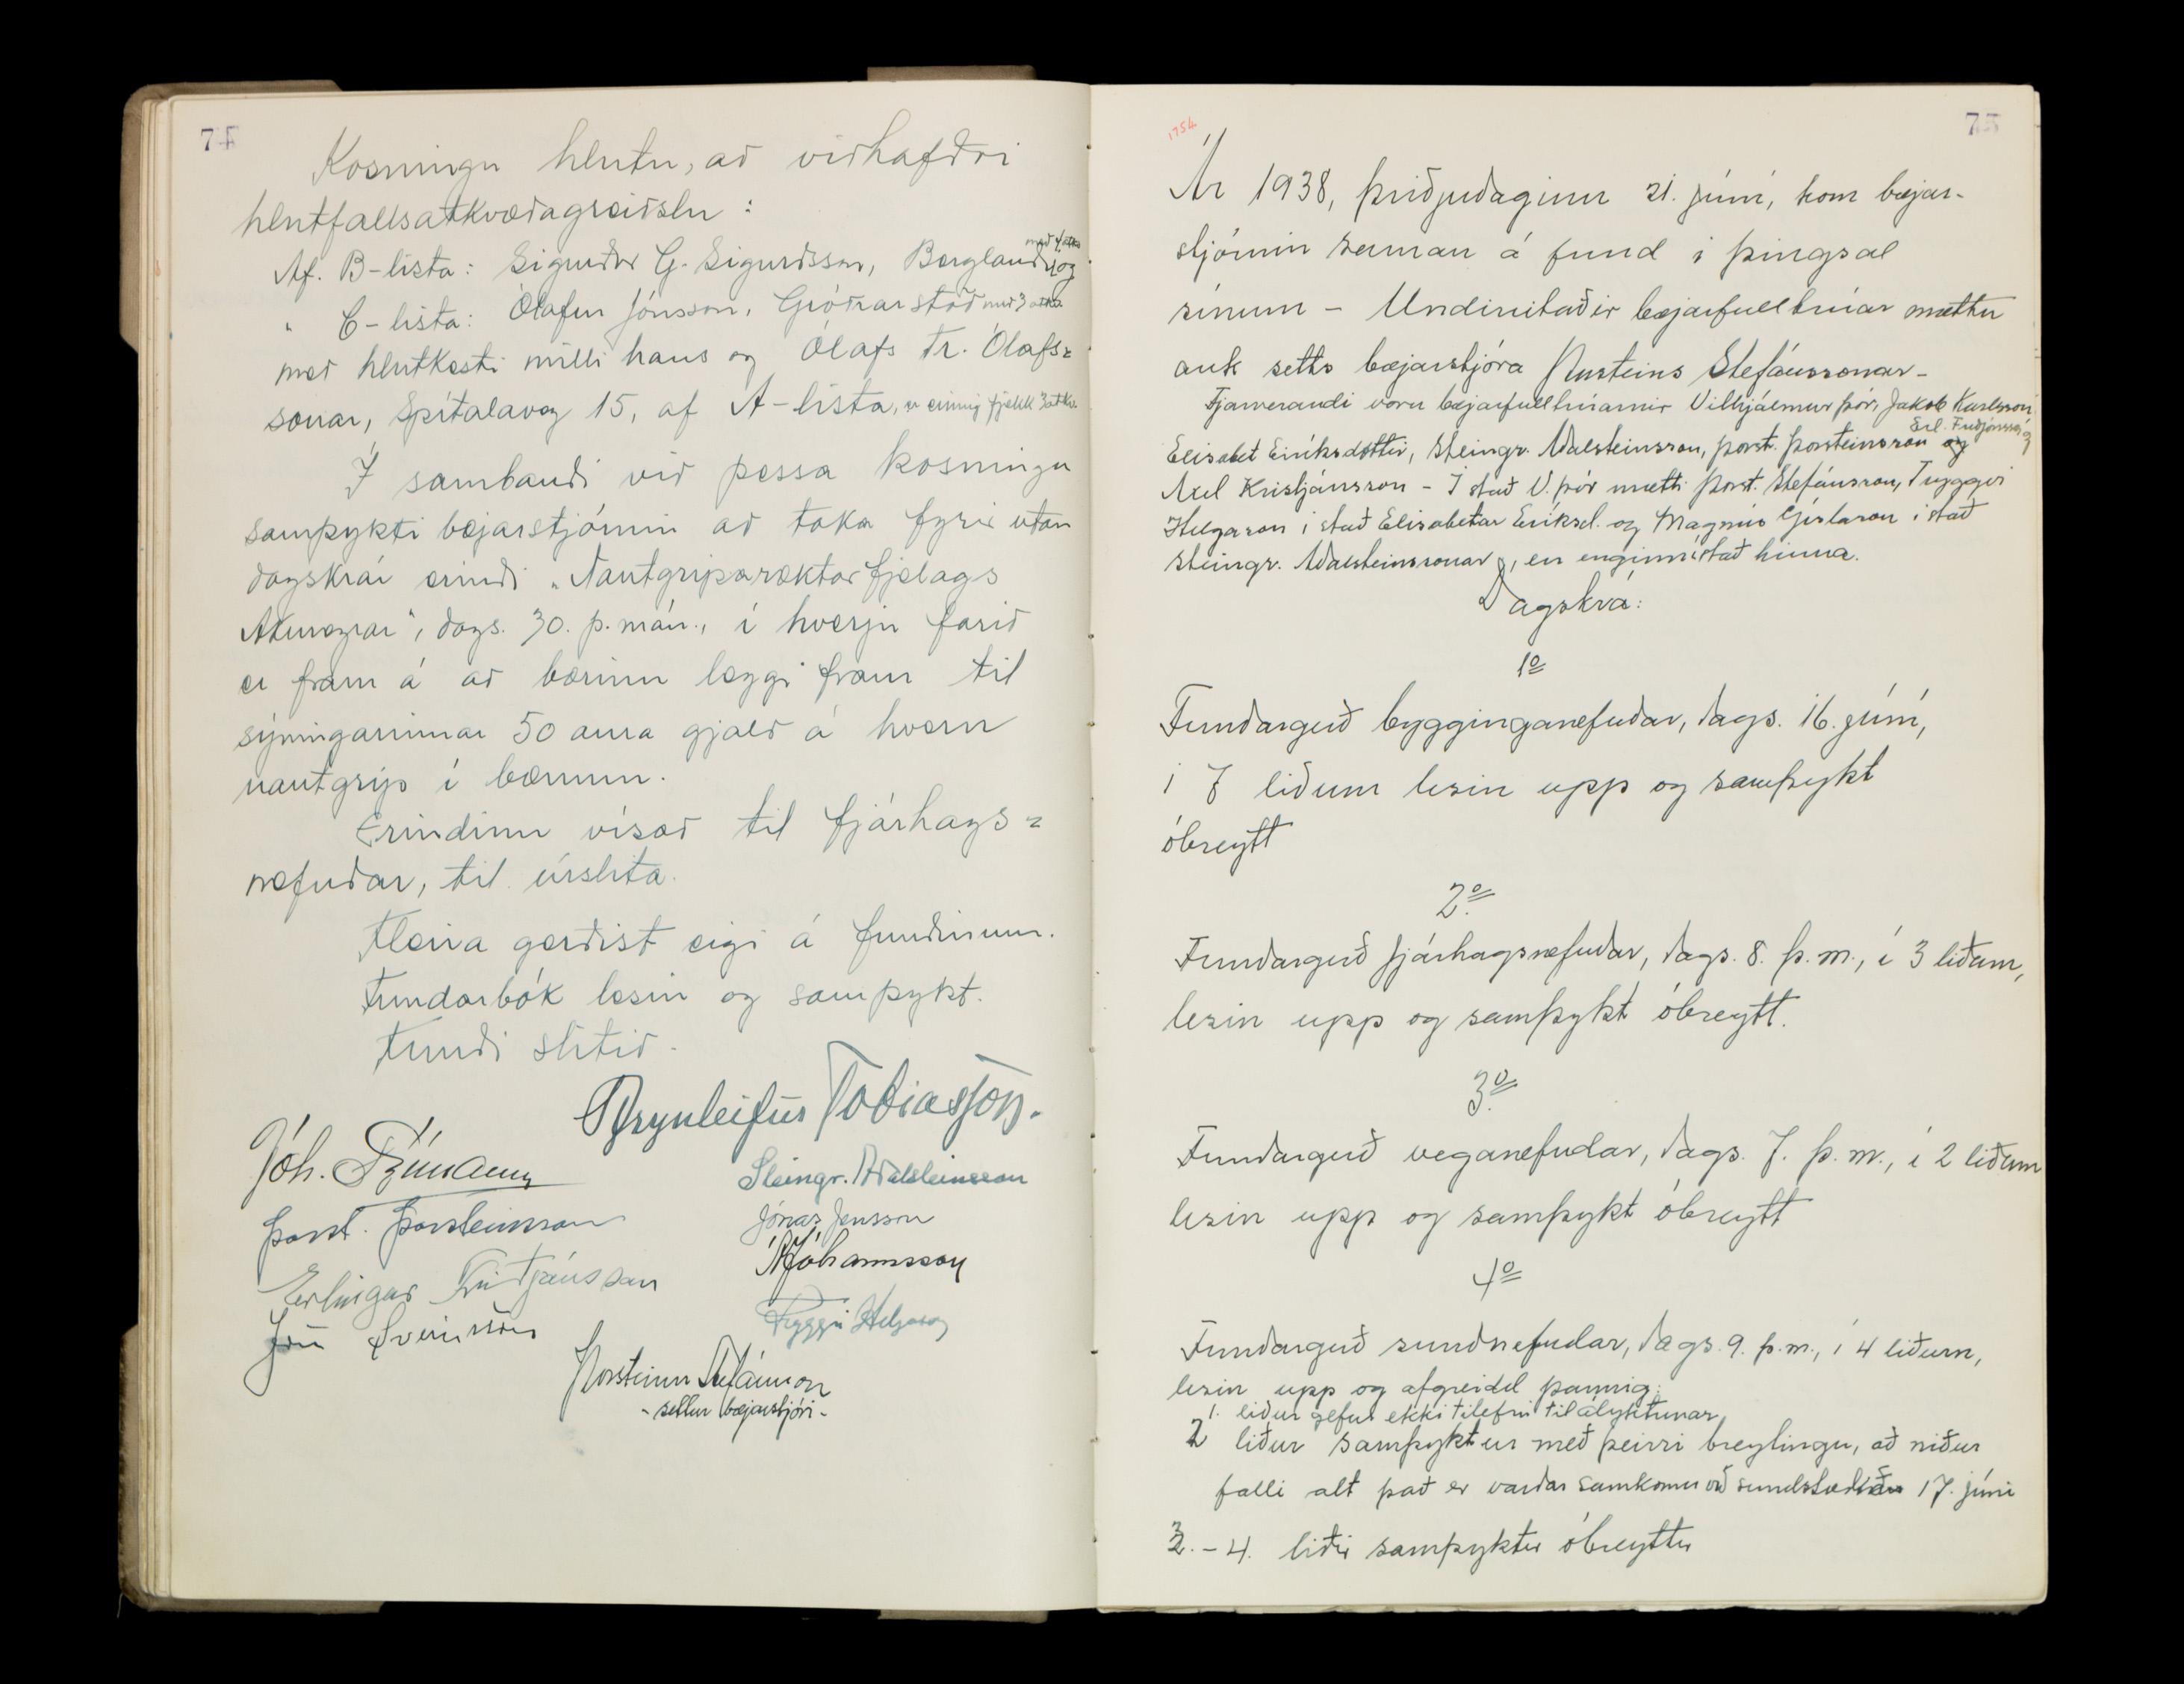 74
Kosningu hlutu, að viðhafðri
hlutfallsatkvæðagreiðslu:
Af. B-lista: Sigurður G. Sigurðsson, Borglandi, með 4 atkv. og
" C-lista: Ólafur Jónsson, Gróðrarstöð með 3 atkv.
með hlutkesti milli hans og Ólafs Tr. Ólafs=
sonar, Spítalaveg 15, af A-lista, er einnig fjekk 3 atkv.
Í sambandi við þessa kosningu
samþykti bæjarstjórnin að taka fyrir utan
dagskrár erindi "Nautgriparæktarfjelags
Akureyrar", dags. 30. þ. mán., í hverju farið
er fram á að bærinn leggi fram til
sýningarinnar 50 aura gjald á hvern
nautgrip í bænum.
Erindinu vísað til fjárhags=
nefndar, til úrslita.
Fleira gerðist eigi á fundinum.
Fundarbók lesin og samþykt.
Fundi slitið.
Brynleifur Tobiasson.
Jóh. Frímann
Steingr. Aðalsteinsson
Þorst. Þorsteinsson
Jónas Jensson
Á Jóhannsson
Erlingur Friðjónsson
Tryggvi Helgason
Jón Sveinsson
Þorsteinn Stefánsson
- settur bæjarstjóri -
1754
75
Ár 1938, þriðjudaginn 21. júní, kom bæjar-
stjórnin saman á fund í þingsal
sínum - Undirritaðir bæjarfulltrúar mættu
auk setts bæjarstjóra Þorsteins Stefánssonar -
Fjarverandi voru bæjarfulltrúarnir Vilhjálmur Þór, Jakob Karlsson
Elísabet Eiríksdóttir, Steingr. Aðalsteinsson, Þorst. Þorsteinsson Erl. Friðjónsson og
Axel Kristjánsson - Í stað V. Þór mætti Þorst. Stefánsson, Tryggvi
Helgason í stað Elísabetar Eiríksd. og Magnús Gíslason í stað
Steingr. Aðalsteinssonar, en enginn í stað hinna.
Dagskrá:
1o
Fundargerð bygginganefndar, dags. 16. júní,
í 7 liðum lesin upp og samþykt
óbreytt
2o
Fundargerð fjárhagsnefndar, dags. 8. þ. m., í 3 liðum,
lesin upp og samþykt óbreytt.
3o
Fundargerð veganefndar, dags. 7. þ. m., í 2 liðum
lesin upp og samþykt óbreytt
4o
Fundargerð sundnefndar, dags. 9. þ. m., í 4 liðum,
lesin upp og afgreidd þannig:
1. liður gefur ekki tilefni til ályktunar
2 liður samþyktur með þeirri breytingu, að niður
falli alt það er varðar samkomu við sundstæðið 17. júní
3. - 4. liðir samþyktir óbreyttir